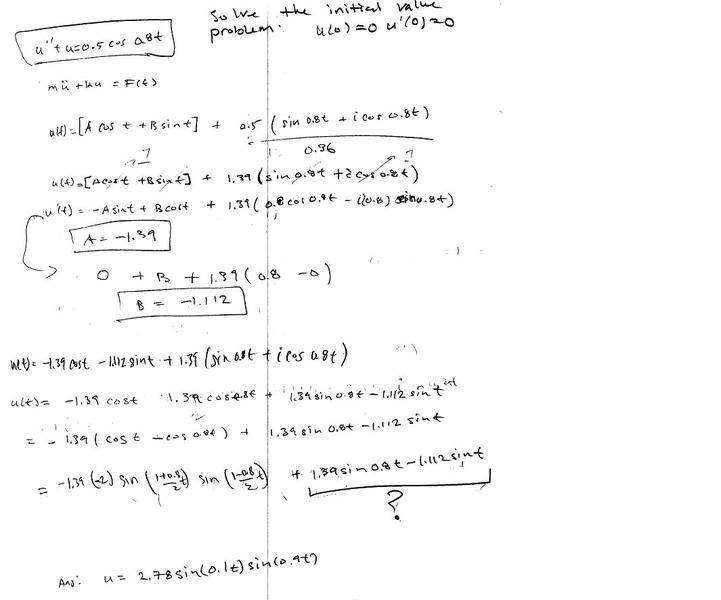 Solve the initial value
problem. u(0)=0 u'(0)=0
u''+u=0.5 cos 0.8t
mü+ku = F(t)
u(t)=[A cos t +B sint] + 0.5 (sin 0.8t + i cos 0.8t)
0.36
u(t)=[Acost +Bsint] + 1.39 (sin 0.8t +i cos 0.8t)
u'(t) = -Asint + Bcost + 1.39( 0.8 cos 0.8t - i(0.8) sin 0.8t)
A= -1.39
0 + B + 1.39 ( 0.8 -0)
B = -1.112
u(t)= -1.39 cost -1.112 sint + 1.39 (sin 0.8t + i cos 0.8t)
u(t)= -1.39 cost 1.39 cos 0.8t + 1.39 sin 0.8t - 1.112 sin t
= - 1.39 ( cos t - cos 0.8t) + 1.39 sin 0.8t -1.112 sint
= -1.39 (-2) sin (1+0.8/2 t) sin (1-0.8/2 t) + 1.39 sin 0.8t -1.112 sin t
?
Ans: u = 2.78 sin(0.1t) sin(0.9t)